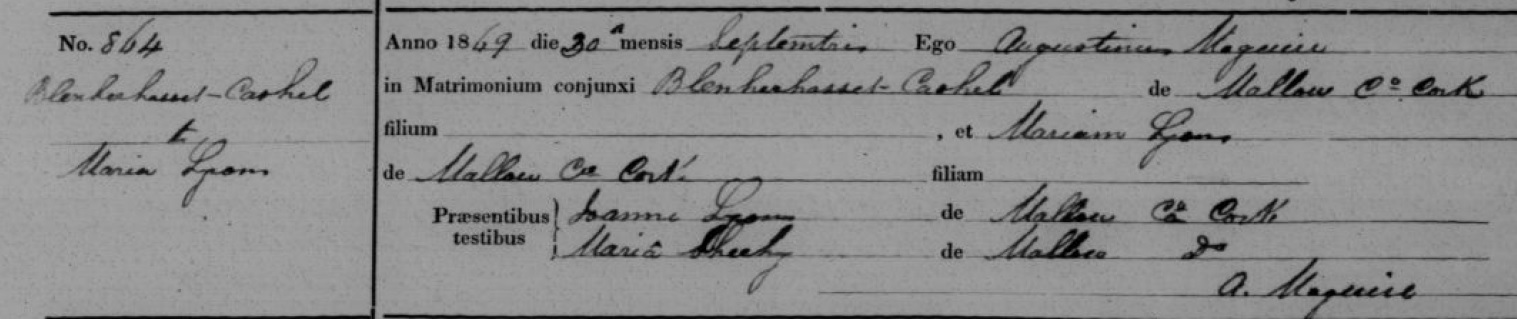 No. 864
Blenherhasset-Cashel
&
Maria Lyons
Anno 1869 die 30ª mensis Septembris Ego Augustinus Maguire
in Matrimonium conjunxi Blenherhasset-Cashel de Mallow Co Cork
filium , et Mariam Lyons
de Mallow Co Cork filiam
Præsentibus testibus } Joanne Lyons de Mallow Co Cork
Mariâ Sheehy de Mallow Do
A. Maguire